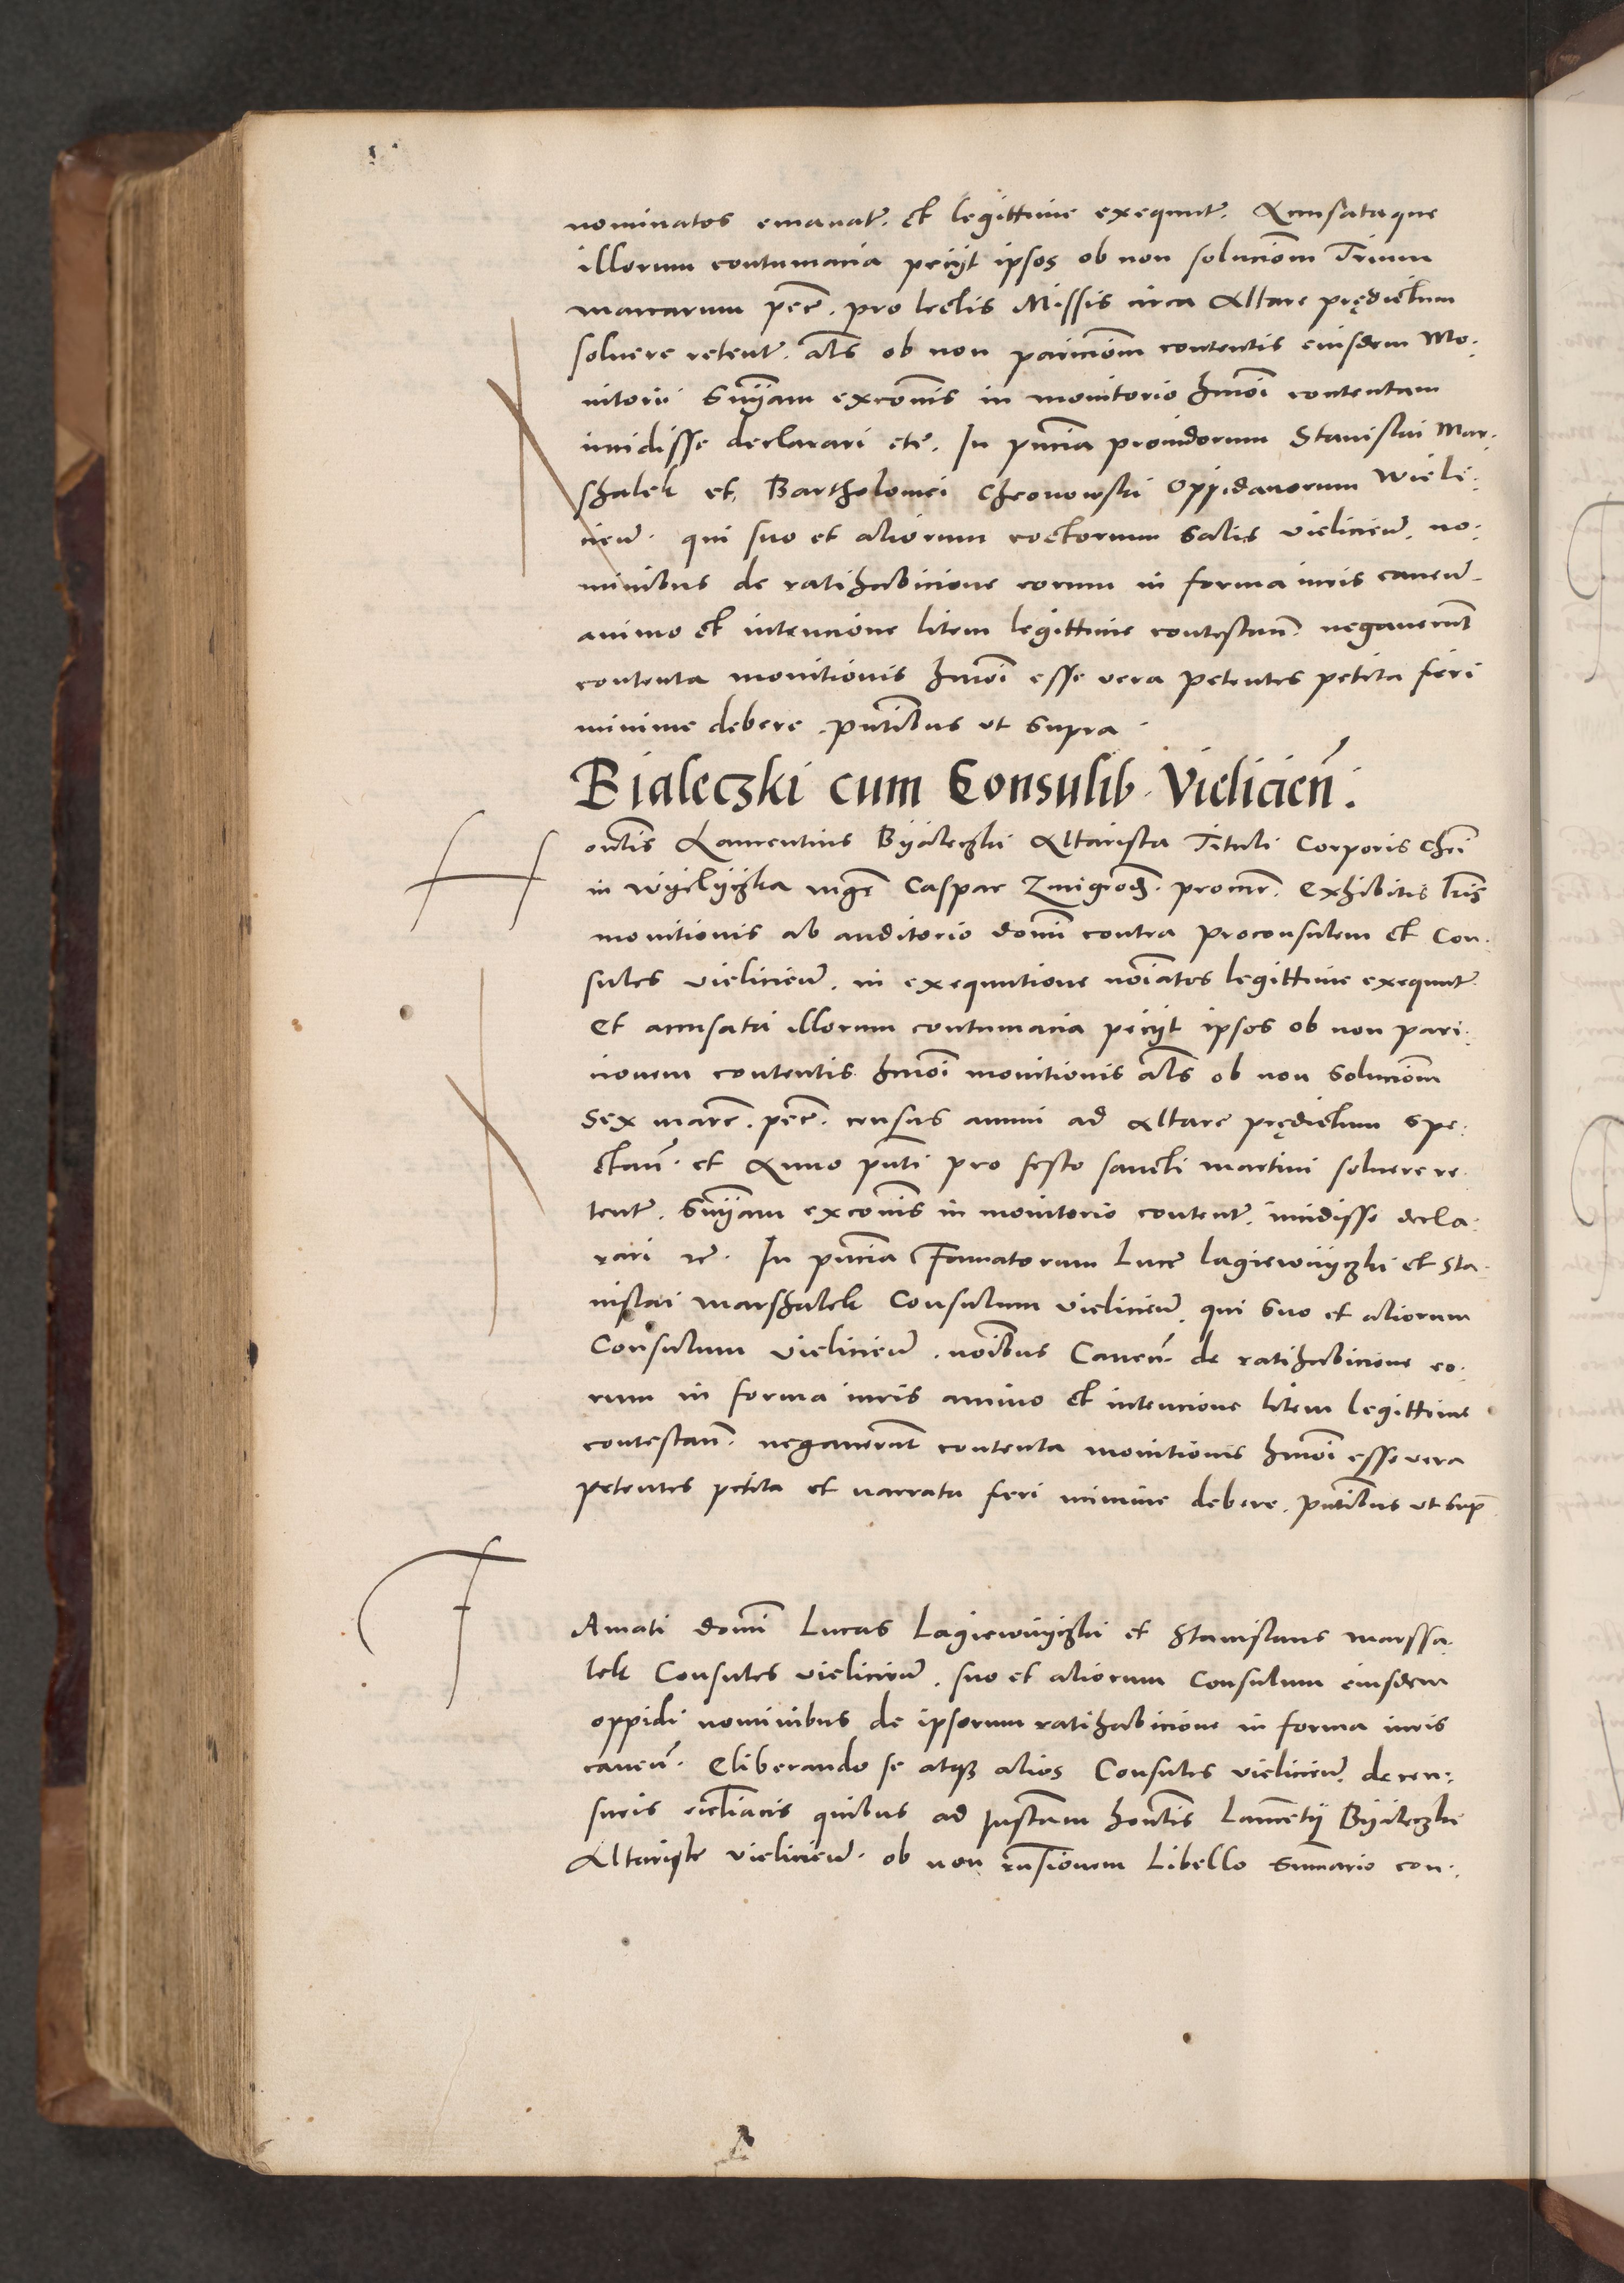 nominatos emanat. et legittime exequut. Accusataque
illorum contumacia peciyt ipsos ob non soluciom Trium
marcarum pecc. pro lectis Missis circa Altare prędictum
soluere retent. als ob non pariciom contentis eiusdem Mo:
nitorii Sniam excois in monitorio hmoi contentam
incidisse declarari etc. In pncia prouidorum Stanislai Mar:
shalek et Bartholomei Chronowski Oppidanorum Wieli:
cien. qui suo et aliorum coctorum Salis vielicien. no:
minibus de ratihabicione eorum in forma iuris cauen.
animo et intencione litem legittime contestan. negauerunt
contenta monitionis hmoi esse vera petentes petita fieri
minime debere. pntibus ut supra
Bialeczki cum Consulib. Vielicien.
H
ontis Laurentius Byaleczki Altarista Tituli Corporis Chri
in Wyelyczka mgri Caspar Zmigrod. procur. exhibitis lris
monitionis ab auditorio domi contra proconsulem et Con:
sules vielicien. in exequutione noiatos legittime exequut.
Et accusata illorum contumacia peciyt ipsos ob non pari:
cionem contentis hmoi monitionis als ob non soluciom
Sex marc. pecc. census annui ad Altare prędictum spe:
ctan. et Anno pnti pro festo sancti martini soluere re:
tent. Sniam excois in monitorio content. incidisse decla:
rari etc. In pncia Famatorum Luce lagiewnyczki et Sta:
nislai marshalek Consulum vielicien. qui suo et aliorum
Consulum vielicien. noibus Cauen. de ratihabicione eo:
rum in forma iuris animo et intencione litem legittime
contestan. negauerunt contenta monitionis hmoi esse vera
petentes petita et narrata fieri minime debere. pntibus ut supr
F
Amati domi Lucas Lagiewnyczki et Stanislaus marssa:
lek Consules vielicien. suo et aliorum Consulum eiusdem
oppidi nominibus de ipsorum ratihabicione in forma iuris
cauen. Eliberando se atq3 alios Consules vielicien. de cen:
suris eccliacis quibus ad Instam hontis Laurentij Byaleczki
Altariste vielicien. ob non Libello Summario con: